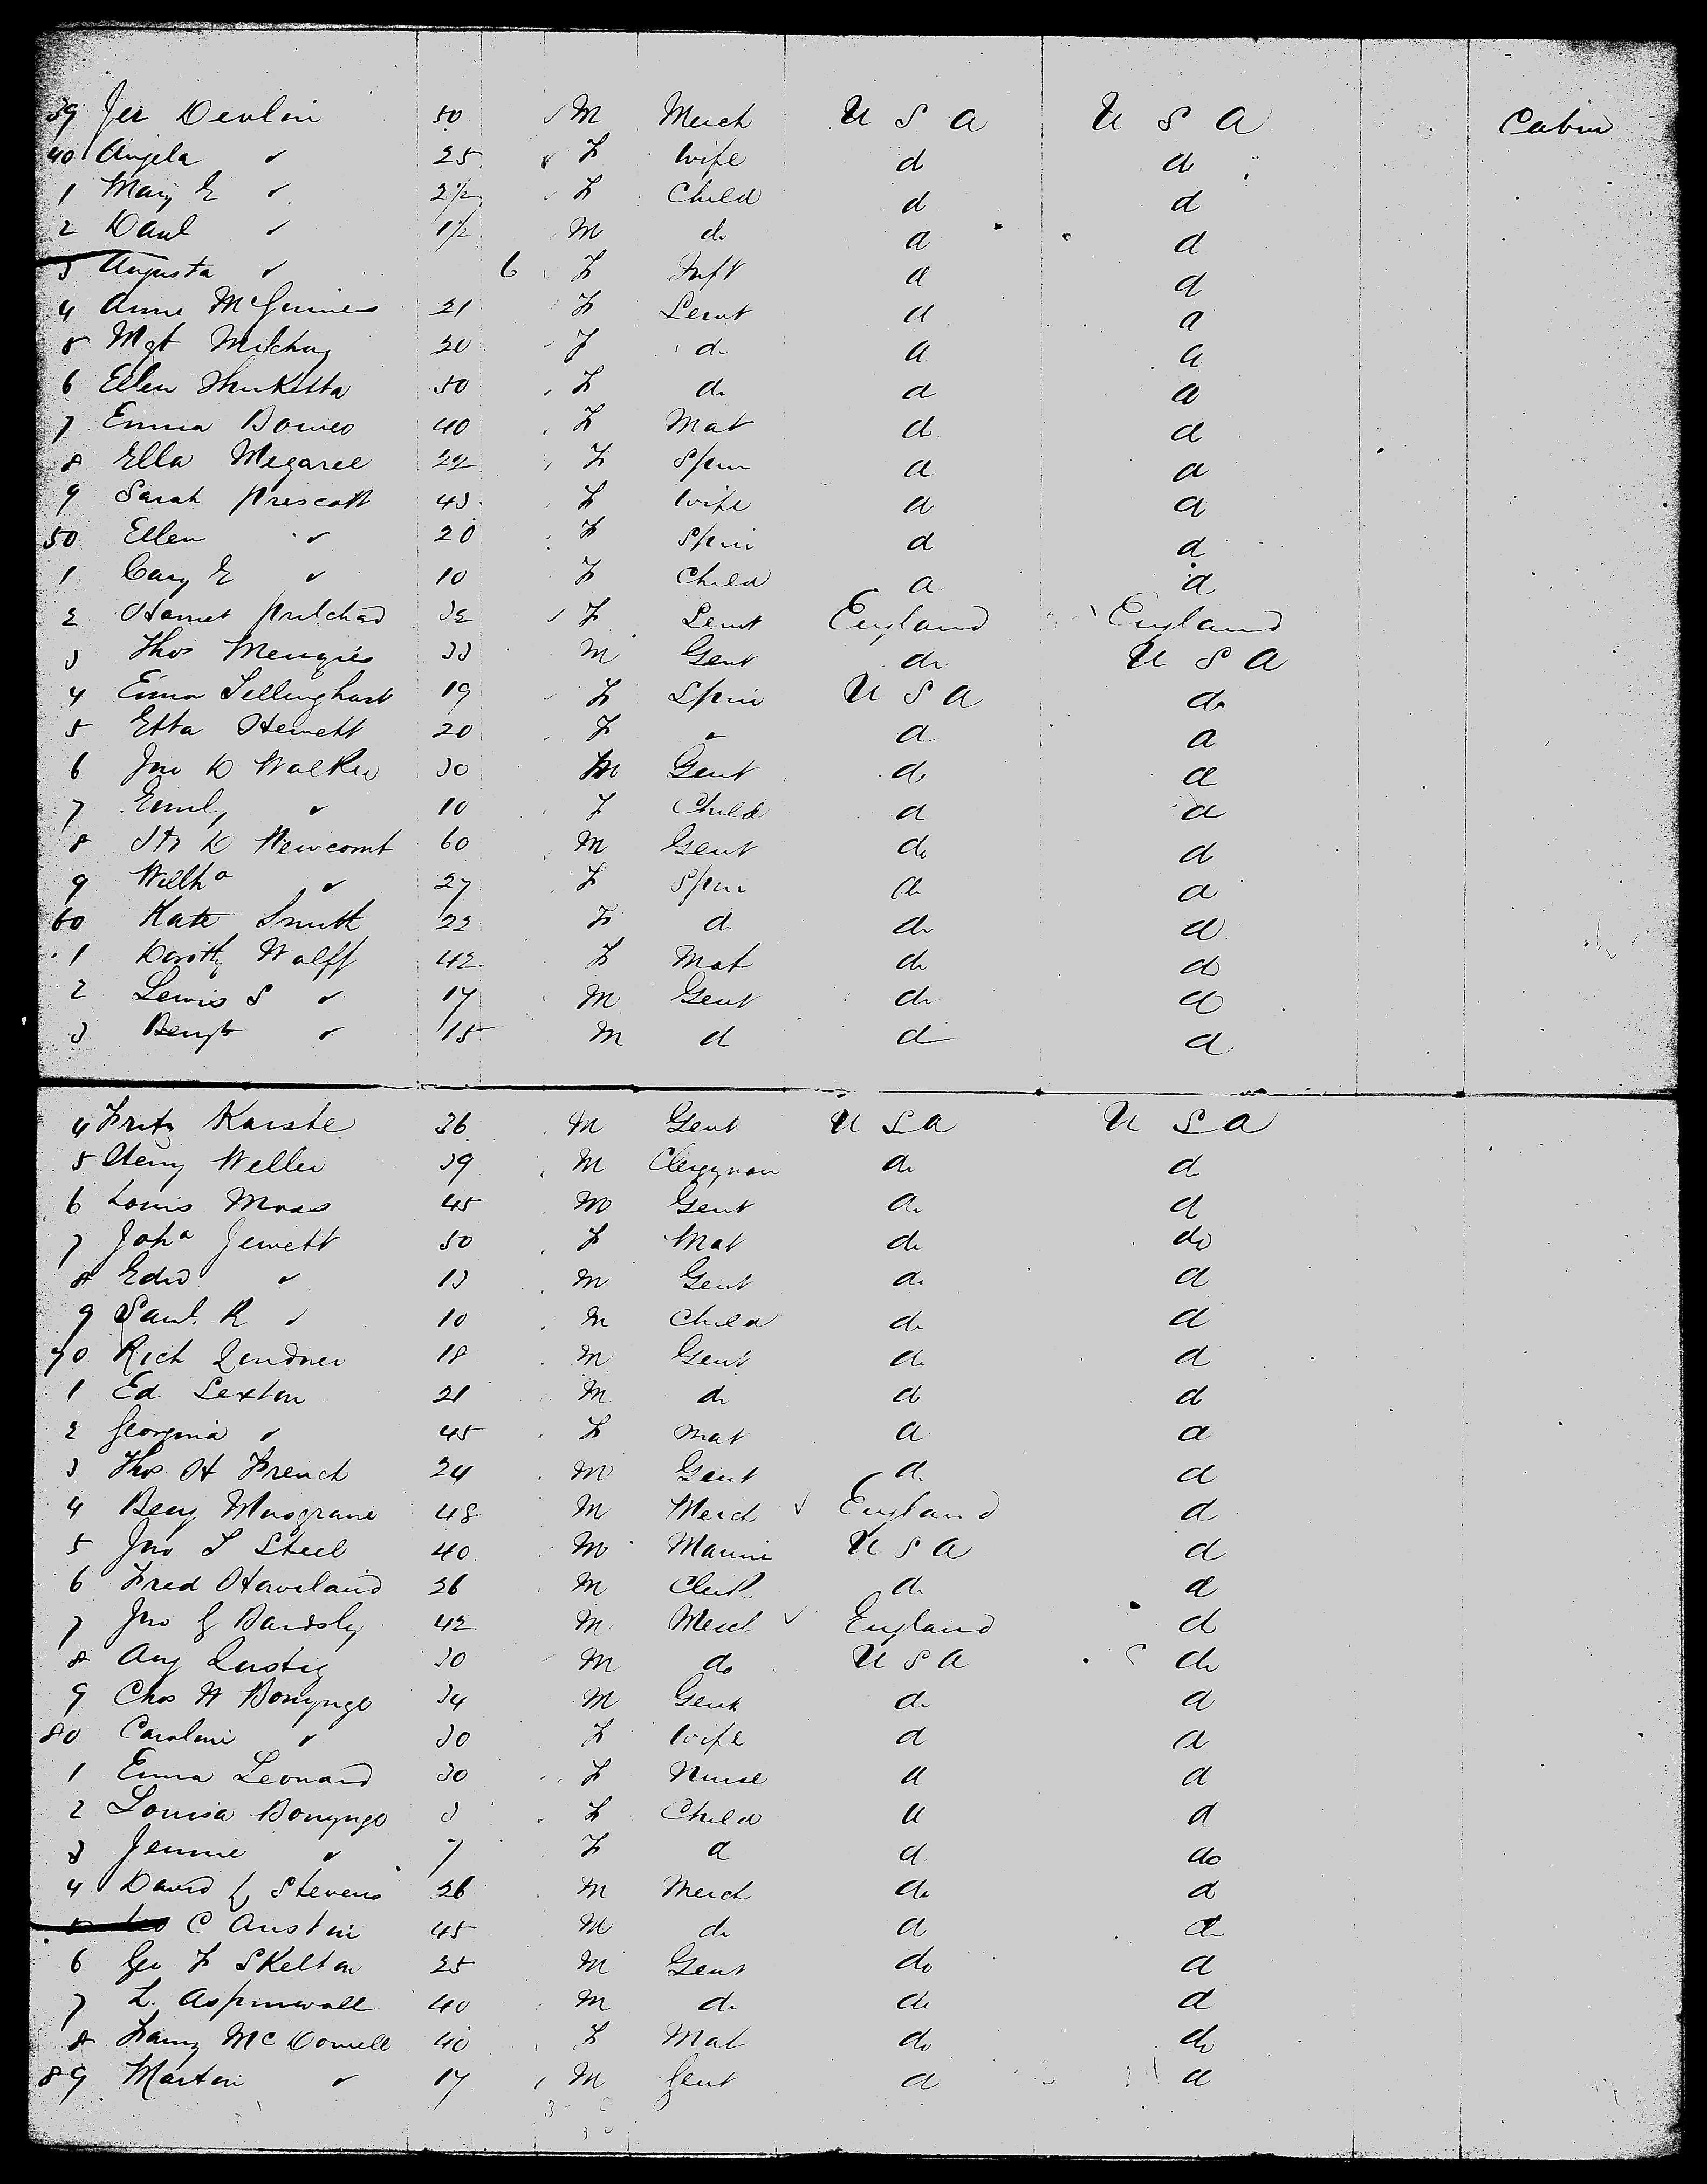 39 Jer Devlin 50 M Merch U S A U S A Cabin
40 Angela " 25 F Wife d d
1 Mary E " 2 1/2 F Child d d
2 Danl " 1 1/2 M do d d
3 Augusta " 6 F Inft d d
4 Anne McGuiness 21 F Servt d d
5 Mgt 20 F do d d
6 Ellen 50 F do d d
7 Emma 40 F Mat d d
8 Ella Megaree 22 F Spin d d
9 Sarah Prescott 43 F Wife d d
50 Ellen " 20 F Spin d d
1 Cary E " 10 F Child d d
2 Harriet Pritchard 32 F Servt England England
3 Thos Menzies 33 M Gent do U S A
4 Emma Tellinghast 19 F Spin U S A do
5 Etta Hewett 20 F " d d
6 Jno D Walker 30 M Gent do d
7 Emily " 10 F Child d d
8 D Newcomb 60 M Gent do d
9 Wilha " 27 F Spin do d
60 Kate Smith 22 F d do d
1 Dorothy Wolff 42 F Mat do do
2 Lewis S " 17 M Gent do d
3 Benj " 15 M d d d
4 Fritz Karste 36 M Gent U S A U S A
5 Heny Weller 39 M Clergyman do do
6 Louis Moss 45 M Gent do d
7 Joha Jewett 50 F Mat do do
8 Edw " 13 M Gent do d
9 Saml. R " 10 M Child do d
70 Rich Lindner 18 M Gent do d
1 Ed Sexton 21 M do do d
2 Georgina " 45 F Mat d d
3 Thos H French 24 M Gent d d
4 Benj Musgrave 48 M Merch England d
5 Jno S Steel 40 M Marine U S A d
6 Fred Haviland 26 M Clerk do d
7 Jno G Bardsly 42 M Merch England d
8 Aug Lustig 30 M do U S A do
9 Chas W Bonynge 34 M Gent do d
80 Caroline " 30 F Wife d d
1 Emma Leonard 30 F Nurse d d
2 Louisa Bonynge 3 F Child d d
3 Jennie " 7 F d d do
4 David Stevens 26 M Merch do d
5 C Austin 45 M do d do
6 Geo F Skelton 25 M Gent do d
7 L. Aspinwall 40 M do do d
8 Fanny McDowell 40 F Mat do do
89 Martin " 17 M Gent d d